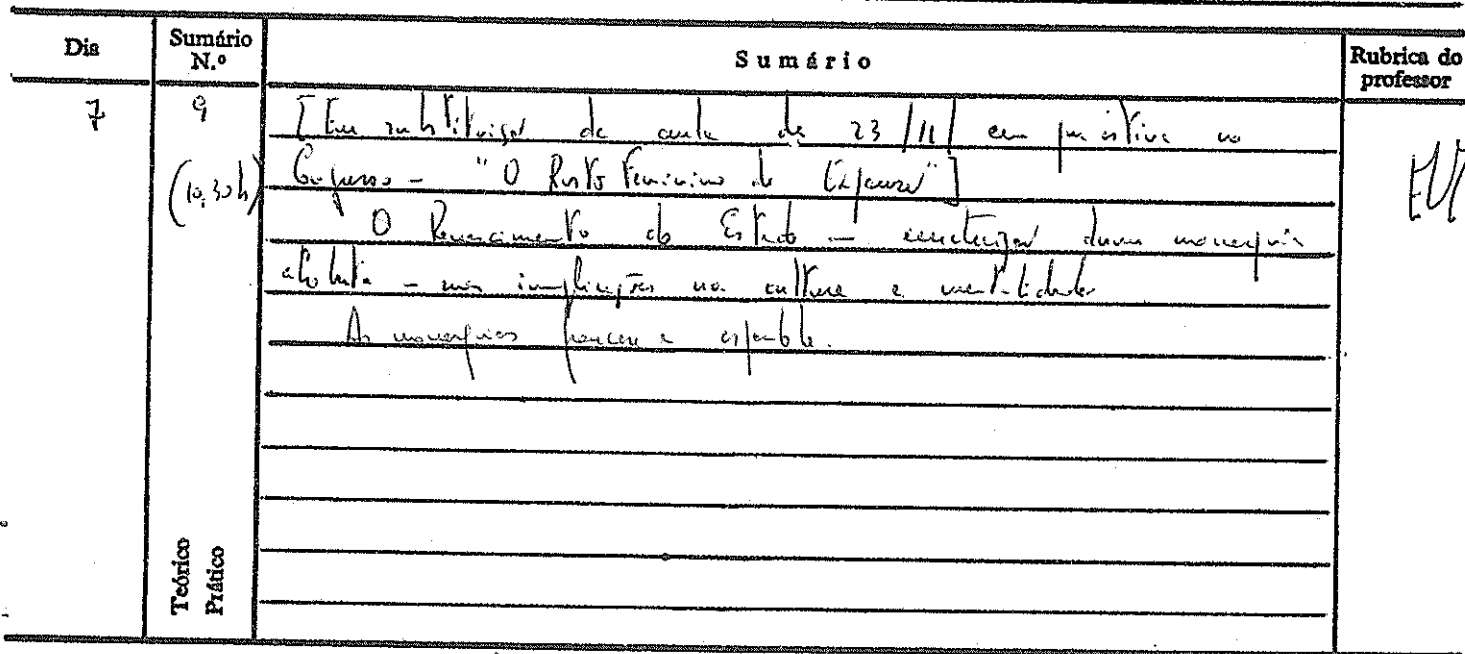 Dia Sumário N.º Sumário Rubrica do professor
7 9 [Em substituição da aula de 23/11/ em que estive no
(10,30h) Congresso - "O Rosto Feminino da Expansão"]
O Renascimento do Estado - caracterização duma monarquia
absoluta - suas implicações na cultura e mentalidade
As monarquias francesa e espanhola.
Teórico
Prático